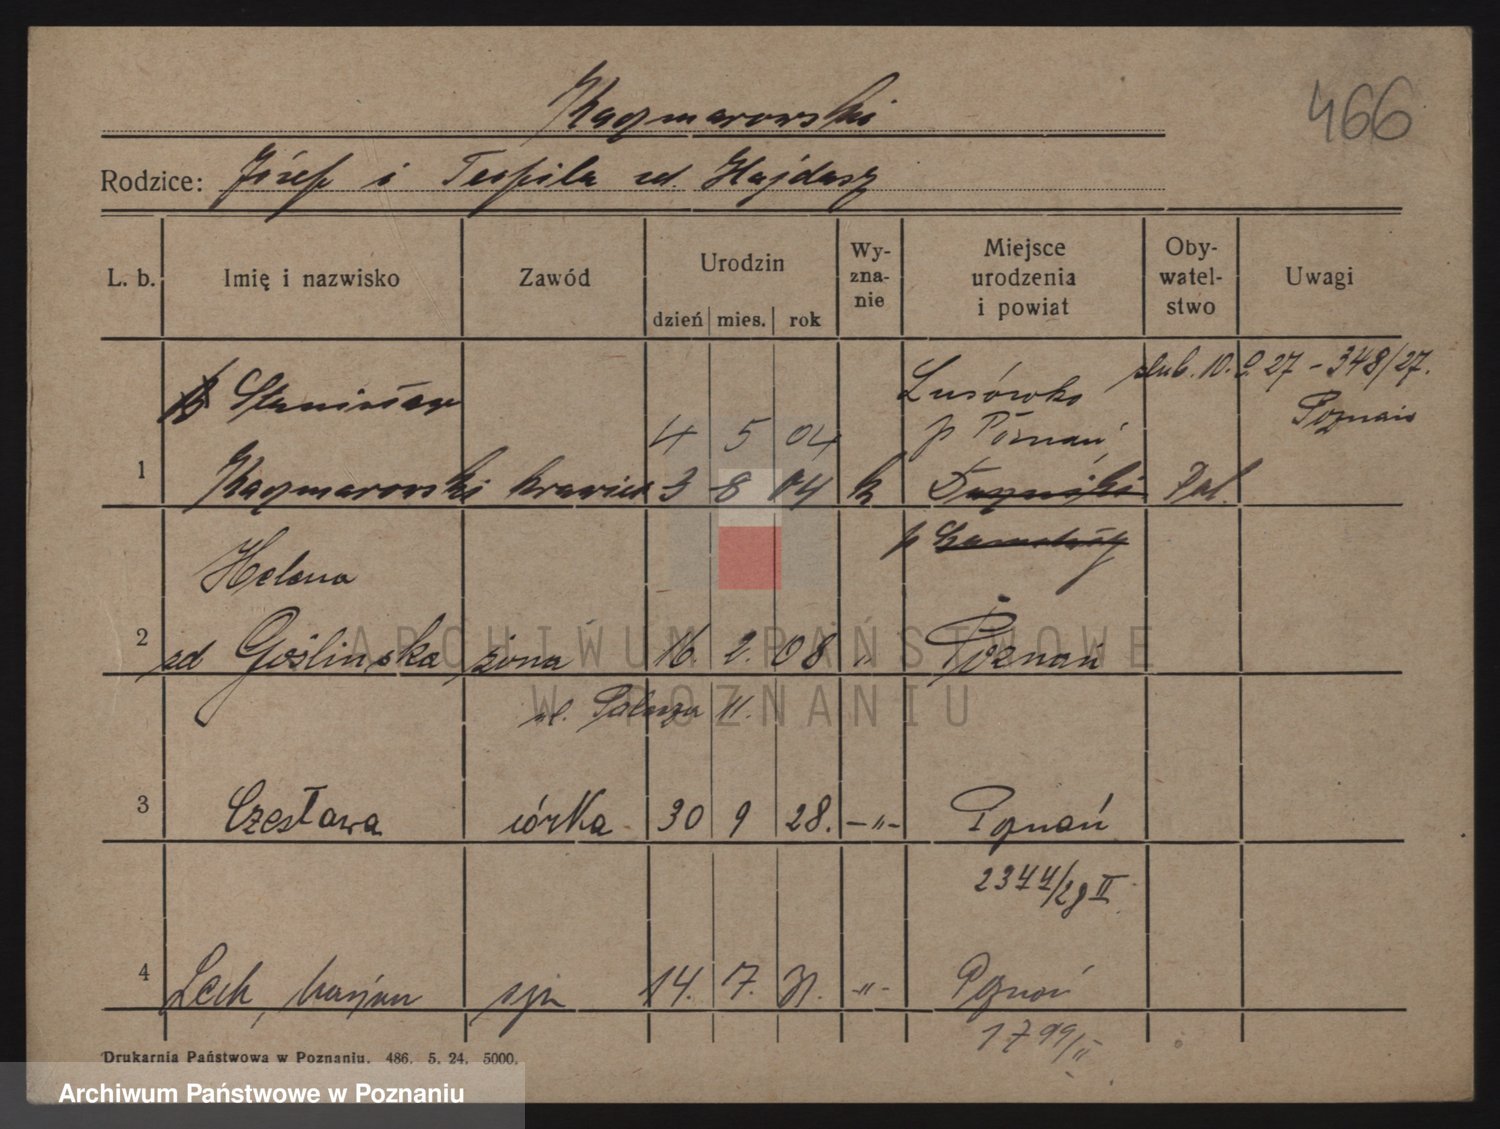 466
Kaczmarowski
Rodzice: Józef i Teofila zd. Hajdasz
L. b. Imię i nazwisko Zawód Urodzin dzień mies. rok Wy-zna-nie Miejsce urodzenia i powiat Oby-watel-stwo Uwagi
Stanisław Lusówko ślub. 10. 9. 27 - 348/27.
4 5 04 p Poznań Poznań
1 Kaczmarowski krawiec 3 8 04 k Pol.
p
Helena
2 zd Goślińska żona 16. 2. 08 " Poznań
ul. 11.
3 Czesława córka 30 9 28. -"- Poznań
2344/28 II
4 Lech, Marjan syn 14. 7. 31. -"- Poznań
1799/II
Drukarnia Państwowa w Poznaniu. 486. 5. 24. 5000.
ARCHIWUM PAŃSTWOWE
W POZNANIU
Archiwum Państwowe w Poznaniu